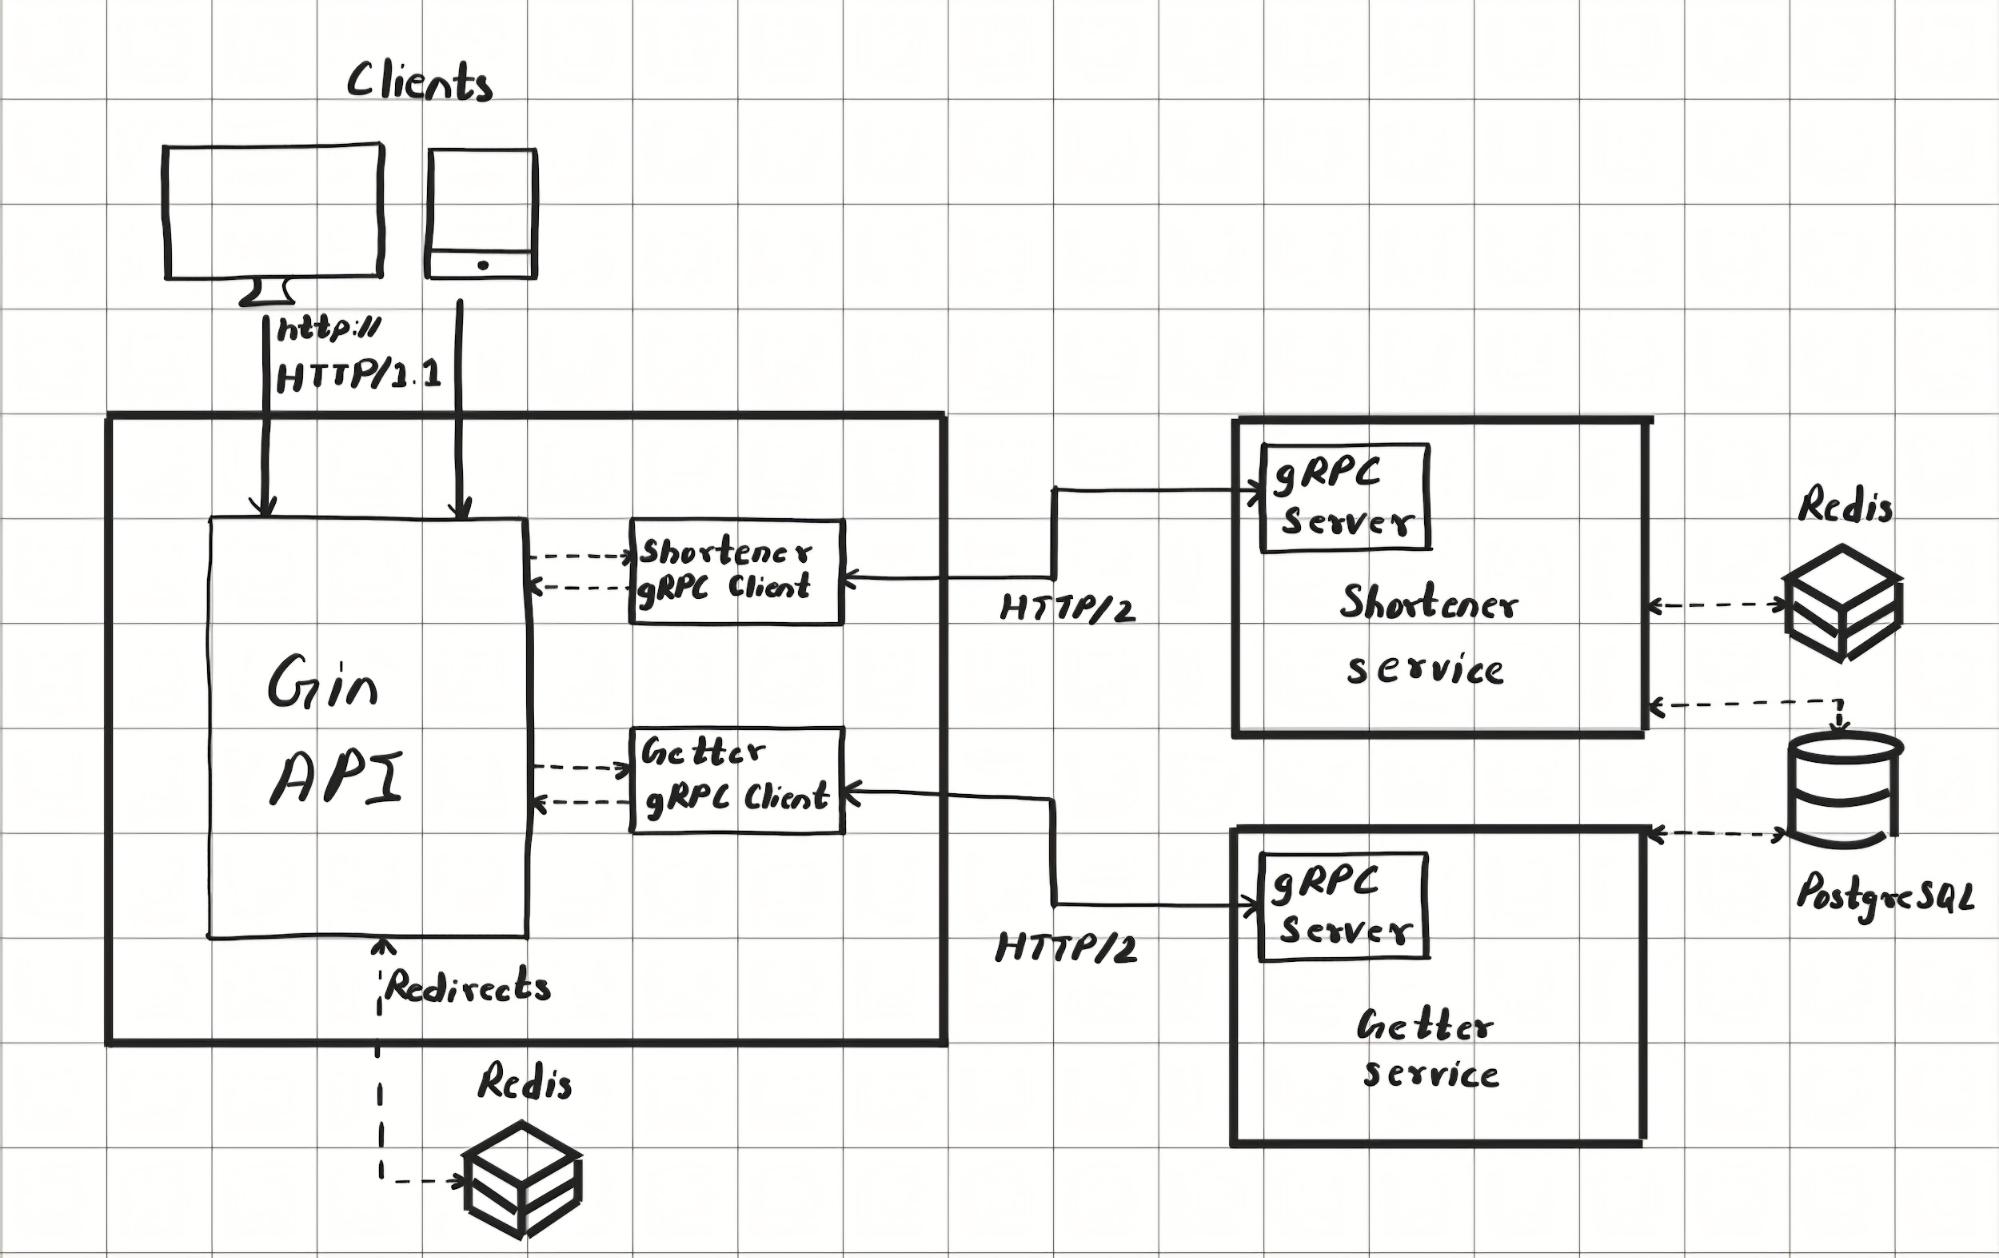 Clients
http://
HTTP/1.1
Gin
API
Shortener
gRPC Client
Getter
gRPC Client
Redirects
Redis
HTTP/2
HTTP/2
gRPC
Server
Shortener
service
gRPC
Server
Getter
service
Redis
PostgreSQL